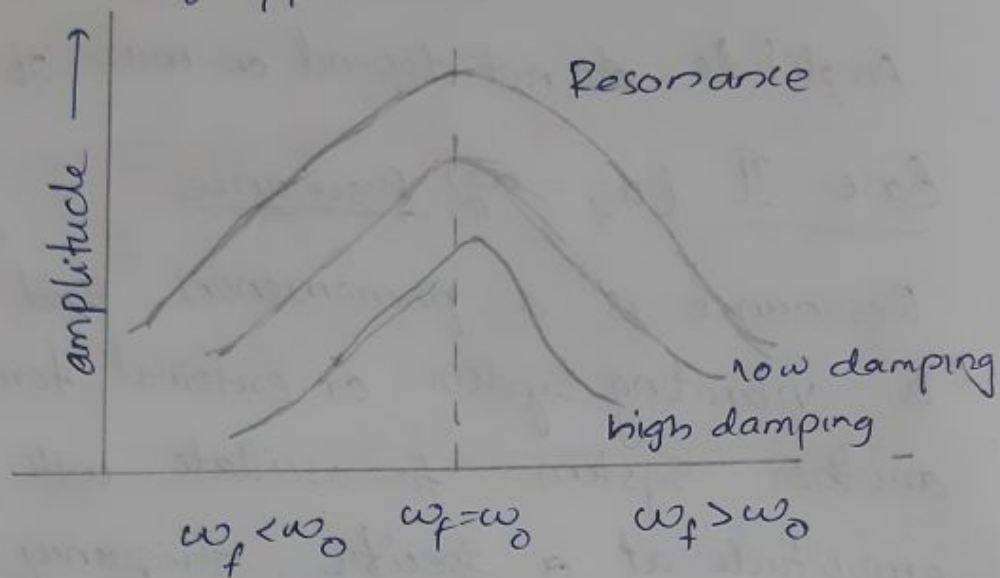 amplitude →
Resonance
low damping
high damping
ω_f < ω_0 ω_f = ω_0 ω_f > ω_0